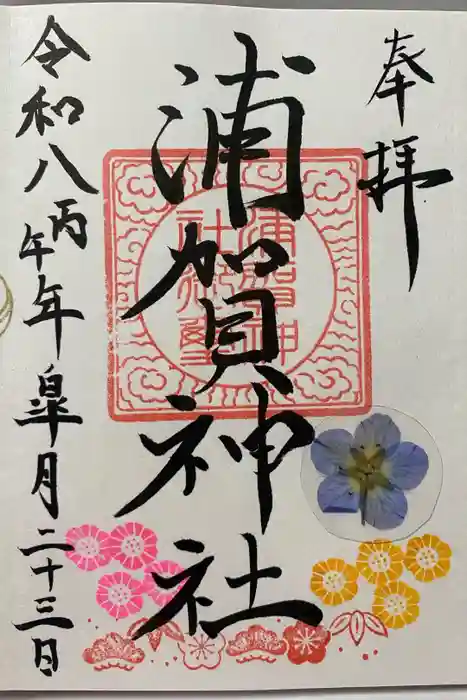 奉拝
浦賀神社
浦賀神
社御璽
令和八丙午年皐月二十三日